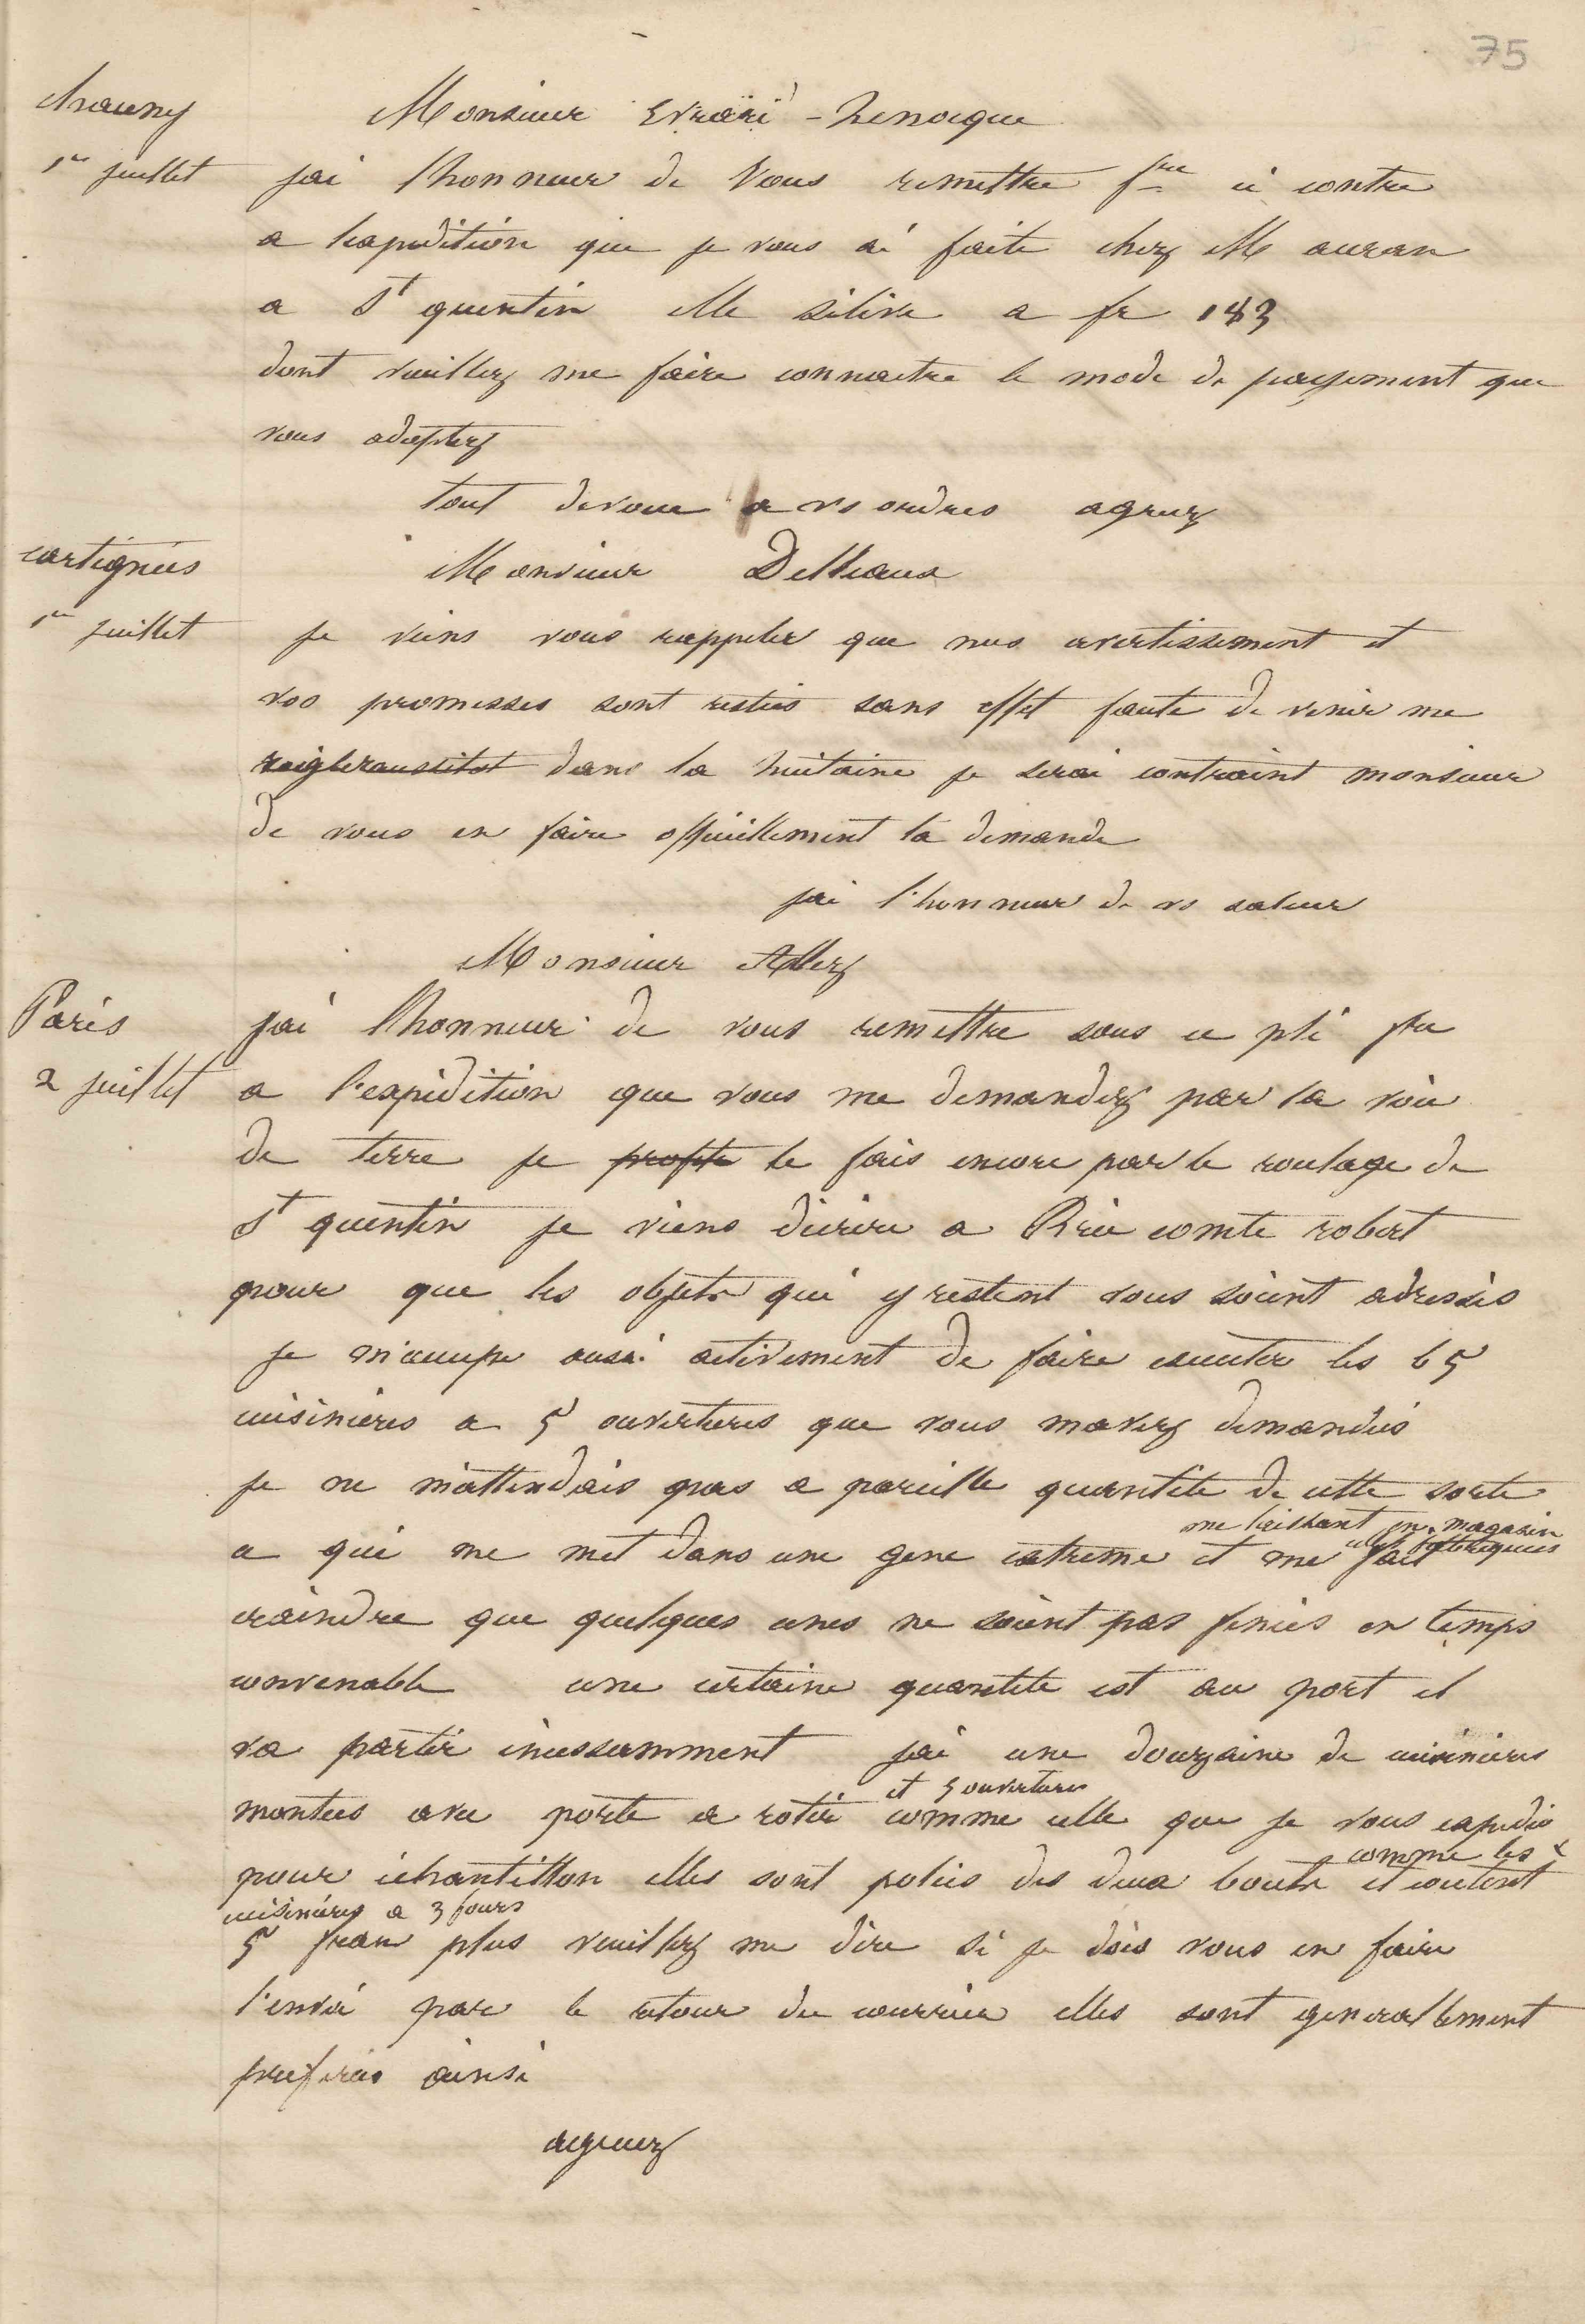 75
chauny
Monsieur Evrard - henocque
1er juillet
jai lhonneur de Vous remettre fre ci contre
a lexpedition que je vous ai faite chez M auran
a St quentin elle seleve a fr 183
dont veuillez me faire connaitre le mode de payement que
vous adoptez
tout devoué a vs ordres agreez
cartignies
Monsieur Delleaux
1er juillet
je viens vous rappeler que mes avertissement et
vos promesses sont restées sans effet faute de venir me
dans la huitaine je serai contraint monsieur
de vous en faire officiellement la demande
jai l'honneur de vs saluer
Monsieur Allez
Paris
jai lhonneur de vous remettre sous ce pli fre
2 juillet
a l'expédition que vous me demandez par la voie
de terre je profite le fais encore par le roulage de
St quentin je viens décrire a Brie comte robert
pour que les objets qui y restent vous soient adressés
je m'occupe aussi activement de faire executer les 65
cuisinières a 5 ouvertures que vous mavez demandées
je ne m'attendais pas a pareille quantité de cette sorte
me laissant en magasin
celles fabriquees
ce qui me met dans une gene extreme et me fait
craindre que quelques unes ne soient pas finies en temps
convenable une certaine quantité est au port et
va partir incessamment jai une douzaine de cuisinieres
et 5 ouvertures
montées avec porte a rotir comme celle que je vous expedie
comme les
pour échantillon elles sont polies des deux bouts et coutent
cuisinières a 3 fours
5 franc plus veuillez me dire si je dois vous en faire
l'envoi par le retour du courrier elles sont generallement
preferées ainsi
agreez